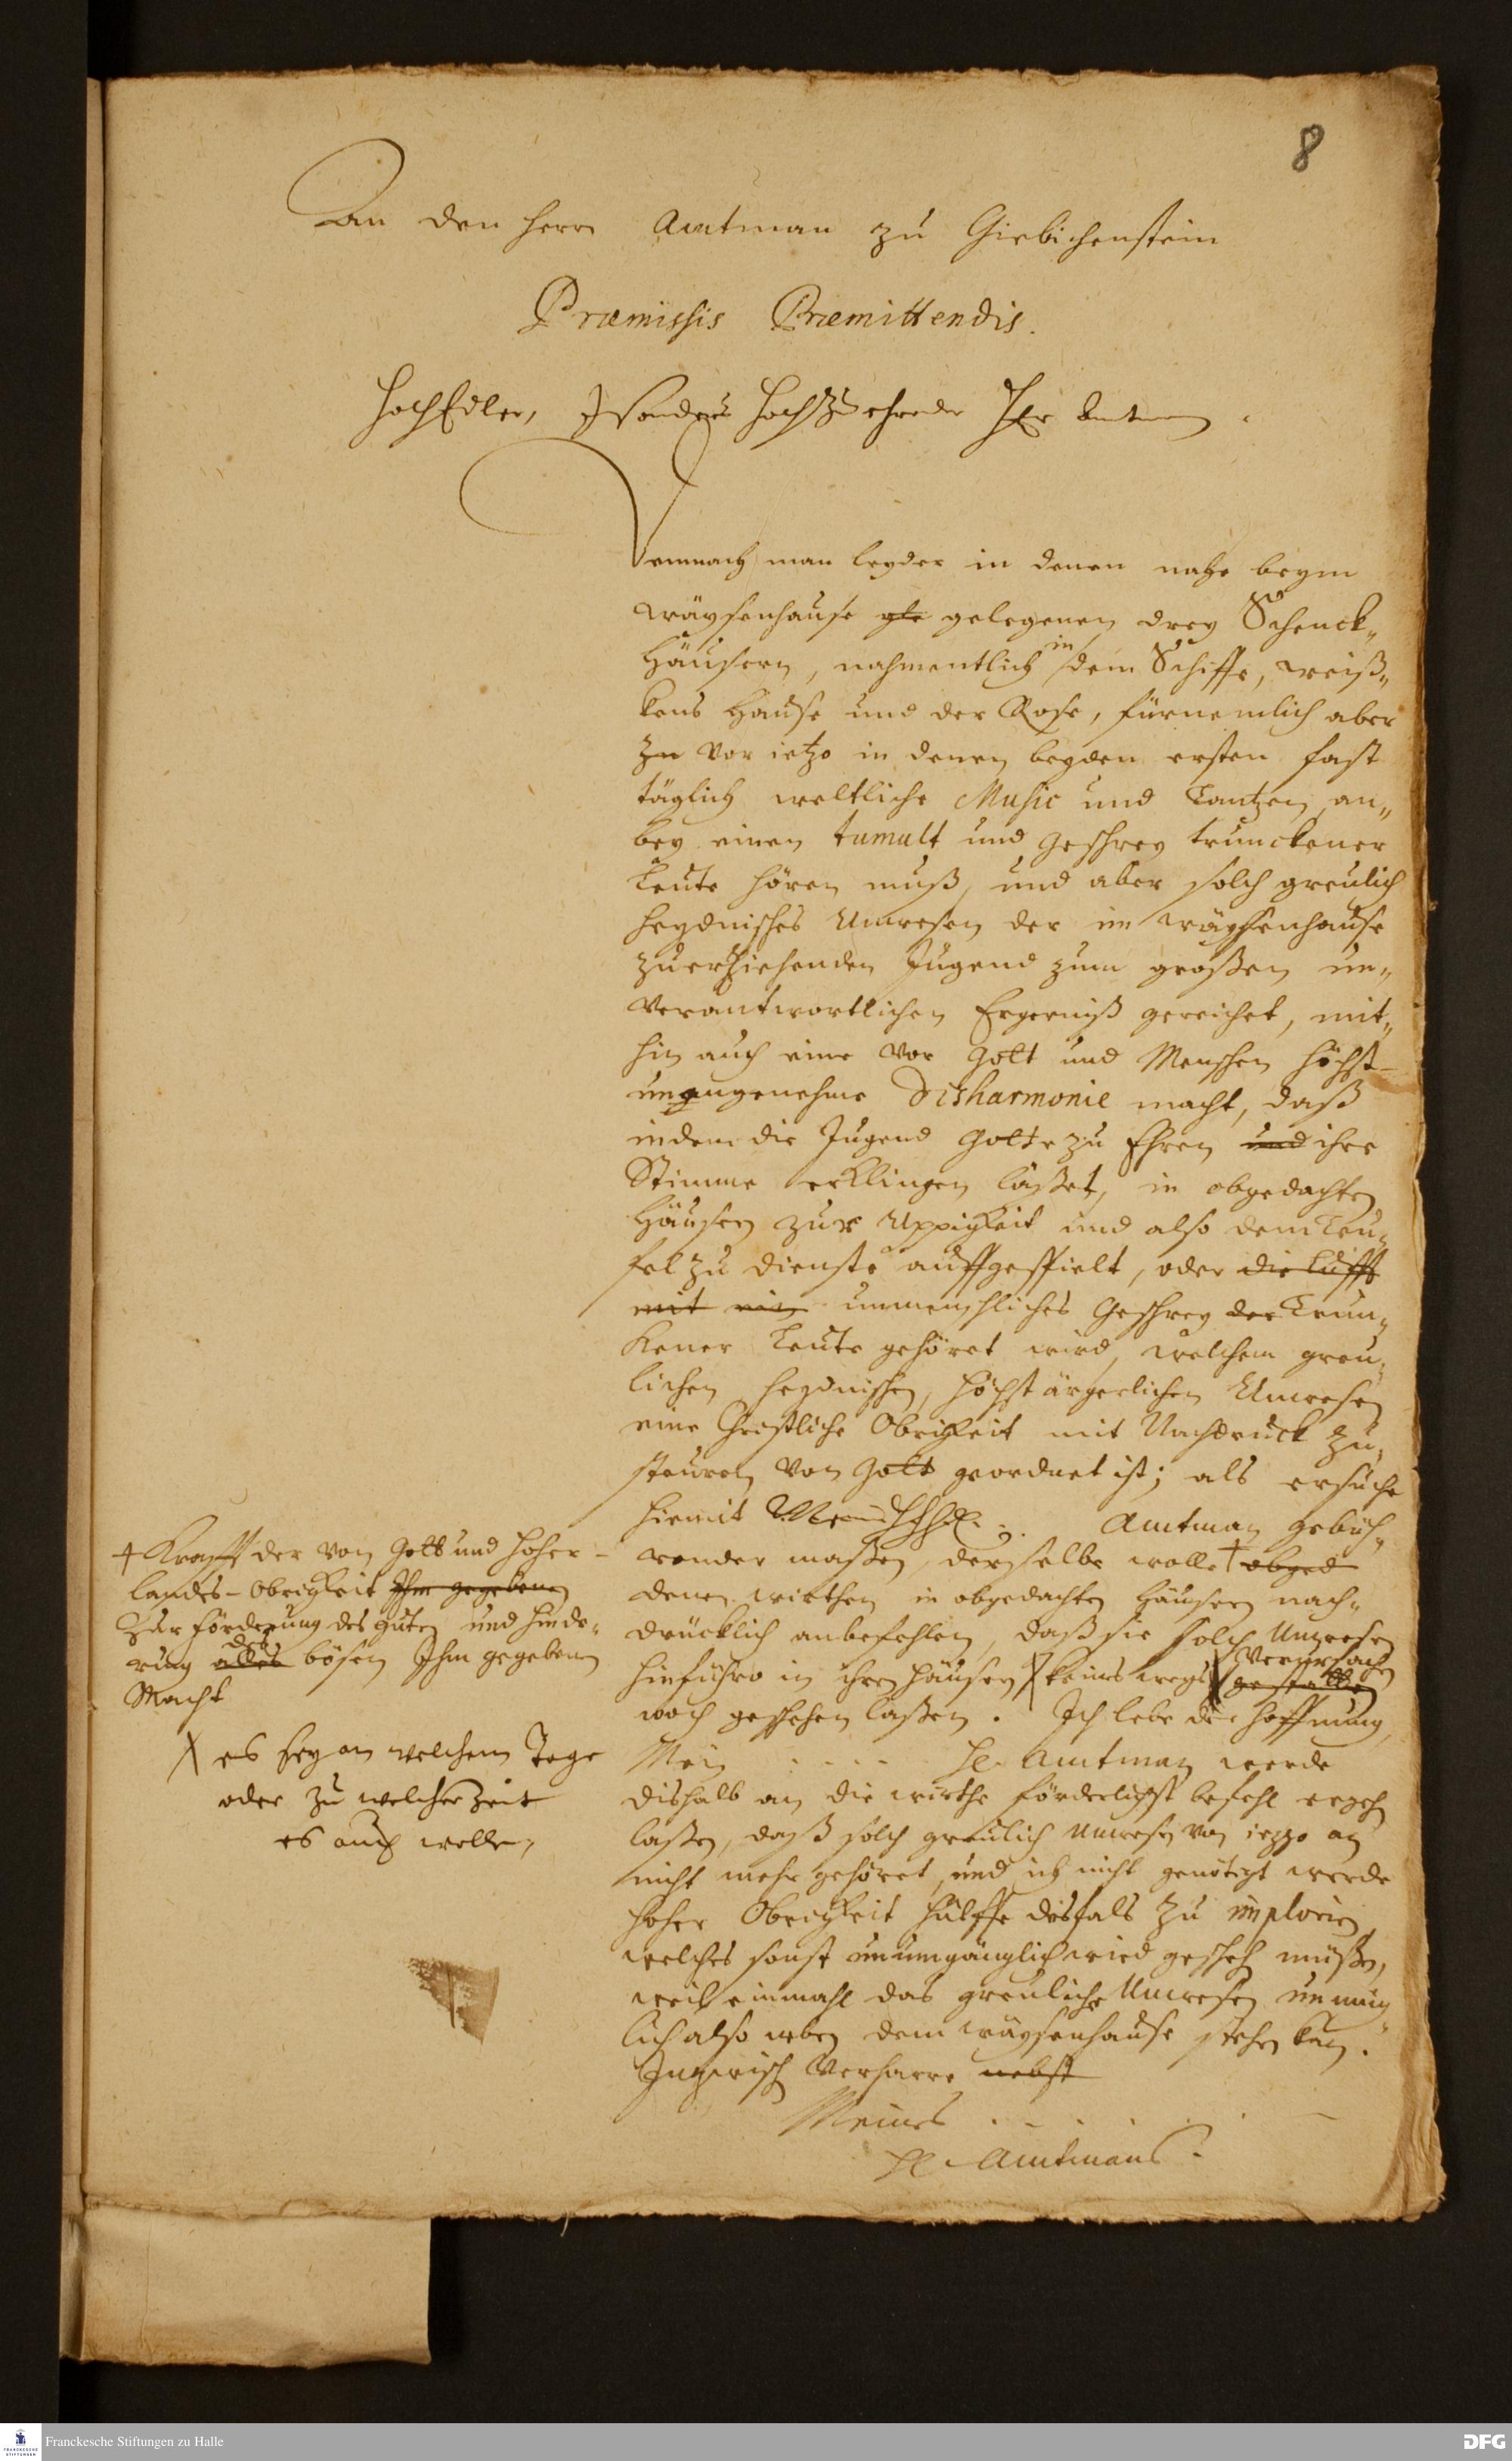 8
An den Herrn Amtman zu Giebichenstein
Præmissis Præmittendis.
HochEdler, Insonders Hochzuehrender Herr Amtman
Demnach man leyder in denen nahe beym
Wäysenhause gle gelegenen drey Schenck-
Häusern, nahmentlich in dem Schiffe, Weiß-
kens Hause und der Rose, fürnemlich aber
zu vor ietzo in denen beyden ersten fast
täglich weltliche Music und Tantzen, an-
bey einen tumult und Geschrey trunckener
Leute hören muß, und aber solch greulich
heydnisches Unwesen der im Wäysenhause
zuerziehenden Jugend zum großen un-
verantwortlichen Ergerniß gereichet, mit-
hin auch eine vor Gott und Menschen höchst-
unangenehme Disharmonie macht, daß
indem die Jugend Gotte zu Ehren und ihre
Stimme erklingen läßet, in obgedachten
Häusern zur Uppigkeit und also dem Teu-
fel zu dienste auffgespielt, oder die Lufft
mit ein unmenschliches Geschrey der Trun-
kener Leute gehöret wird, welchem greu-
lichen heydnischen, höchst ärgerlichen Unwesen
eine Christliche Obrigkeit mit Nachdruck zu
steuren von Gott geordnet ist; als ersuche
hiemit Amtman gebüh-
render maßen, derselbe wolle † obged
denen wirthen in obgedachten Häusern nach-
drücklich anbefehlen, daß sie solch Unwesen
hinführo in ihren Häusern X keines wegs verursachen
gestatten
noch geschehen laßen. Ich lebe der Hoffnung,
Mein . . . . H. Amtman werde
dishalb an die wirthe förderligst befehl ergehen
laßen, daß solch greulich Unwesen von ietzo an
nicht mehr gehöret, und ich nicht genötigt werde
hoher Obrigkeit Hülffe disfals zu imploriren,
welches sonst unumgänglich wird geschehen müßen,
weil einmahl das greuliche Unwesen unmüg-
lich also neben dem Wäysenhause stehen kan.
Inzwischen verharre nebst
Meines . . . . . .
H. Amtmans
† Krafft der von Gott und hoher
Landes-Obrigkeit Ihm gegebenen
Zur Förderung des guten und hinde-
rung alles des bösen Ihm gegebenen
Macht
X es sey an welchem Tage
oder zu welcher Zeit
es auch wolle,
Franckesche Stiftungen zu Halle
DFG